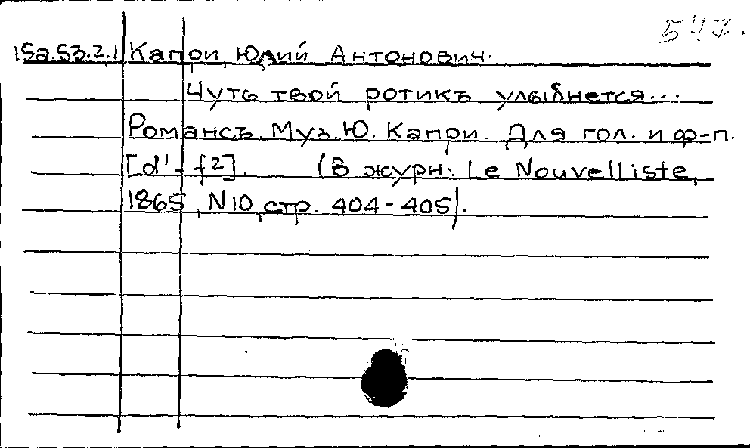 547.
15а.53.2.1 Капри, Юлий Антонович.
Чуть твой ротикъ улыбнется...
Романсъ. Муз. Ю. Капри. Для гол. и ф-п.
[d'-f2]. (В журн.: Le Nouvelliste,
1865, N10, стр. 404-405).